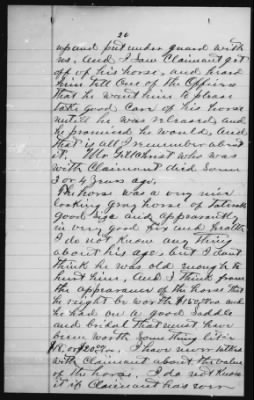 20
up and put under guard with
us. And I saw Claimant get
off of his horse, and heard
him tell One of the Officers
that he want him to please
take good Care of his horse
untill he was released, and
he promised he would, And
that is all I remember about
it. Mr Gilchrist who was
with Claimant died Some
3 or 4 years ago.
The horse was a very nice
looking gray horse of
good size and apparently
in very good fix and health
I do not know any thing
about his age, but I dont
think he was old enough to
hurt him. And I think from
the appearance of the horse that
he might be worth $150
he had on a good Saddle
and bridal that must have
been worth Something like
$18. or $20.00. I have never talked
with Claimant about the value
of the horse. I do not Know
if Claimant has ever